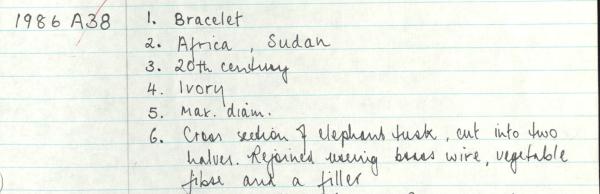 1986 A38 1. Bracelet
2. Africa, Sudan
3. 20th century
4. Ivory
5. Max. diam.
6. Cross section of elephant tusk, cut into two
halves. Rejoined using brass wire, vegetable
fibre and a filler